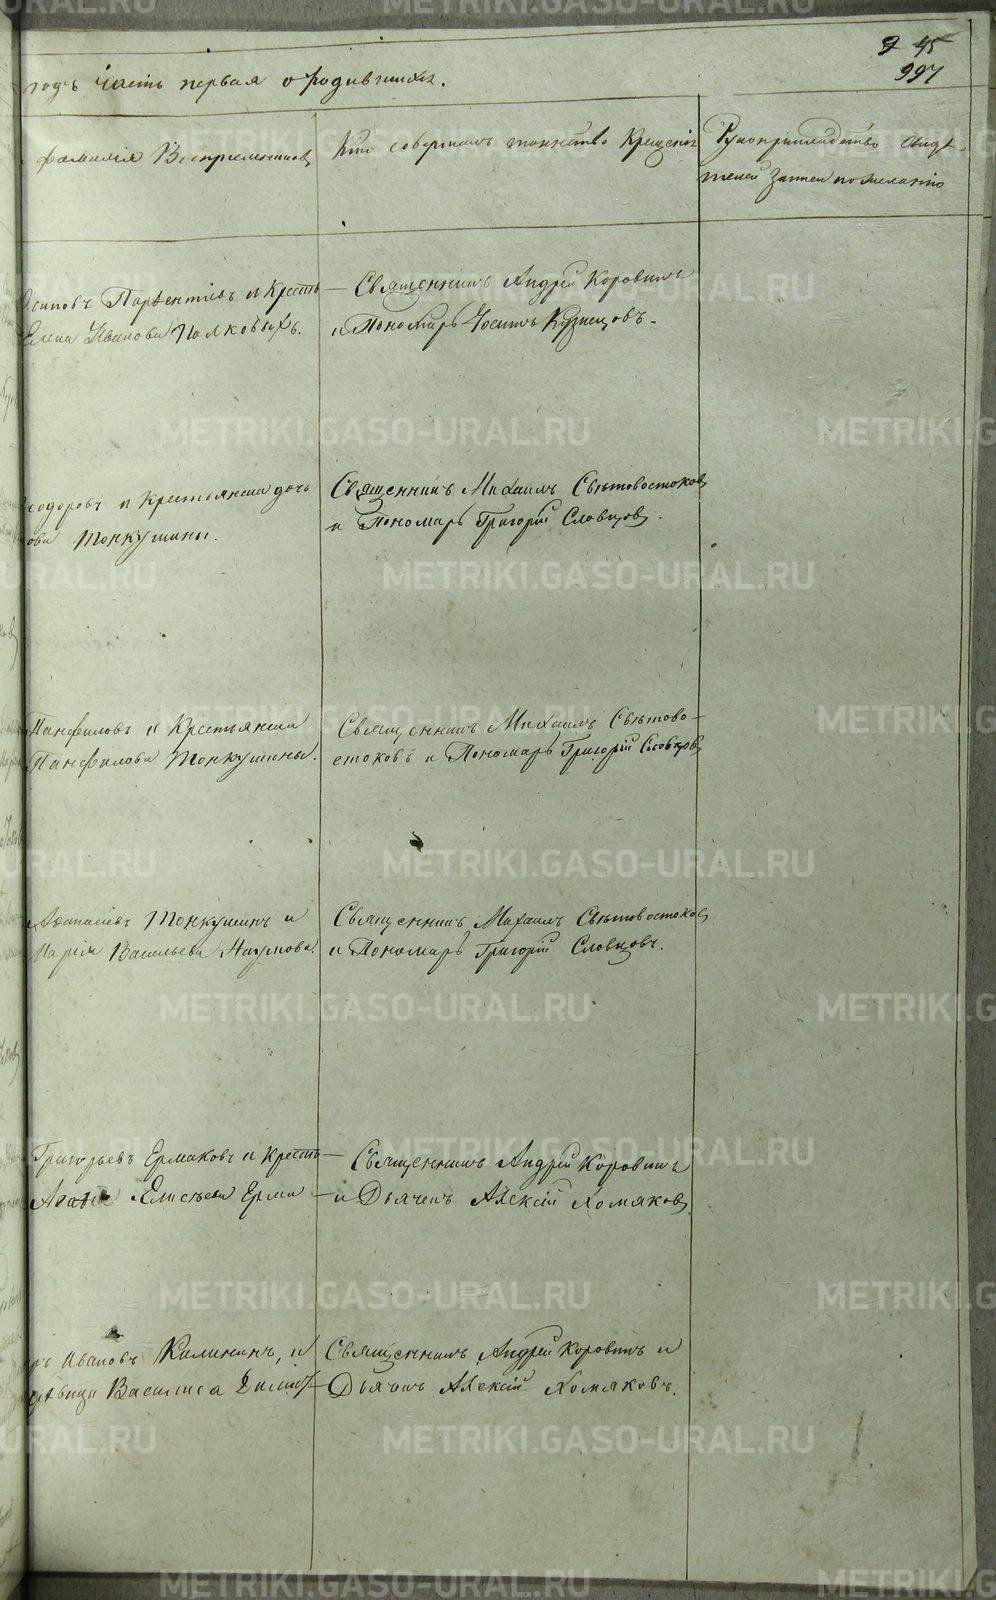 45
997
годъ часть первая о родившихся.
фамилія Воспреемниковъ
Кто совершалъ таинство Крещенія
Рукоприкладство свидѣ-
телей записи по желанію
Осиповъ Парѳентіевъ и Кресть-
Елена Иванова Полковыхъ.
Священникъ Андрей Коровинъ
и Пономарь Іосифъ Кузнецовъ.
еодоровъ и Крестьянская дочь
ова Тонкушины.
Священникъ Михаилъ Свѣтовостоковъ
и Пономарь Григорій Словцовъ.
Панфиловъ и Крестьянская
Панфилова Тонкушины.
Священникъ Михаилъ Свѣтово-
стоковъ и Пономарь Григорій Словцовъ
Аѳанасіевъ Тонкушинъ и
Марія Васильева Наумова.
Священникъ Михаилъ Свѣтовостоковъ
и Пономарь Григорій Словцовъ.
Григорьевъ Ермаковъ и Кресть-
Агафія Елисѣева Ерма-
Священникъ Андрей Коровинъ
и Дьячекъ Алексій Хомяковъ.
ръ Ивановъ Калининъ, и
дѣвица Василиса
Священникъ Андрей Коровинъ и
Дьячекъ Алексій Хомяковъ.
METRIKI.GASO-URAL.RU